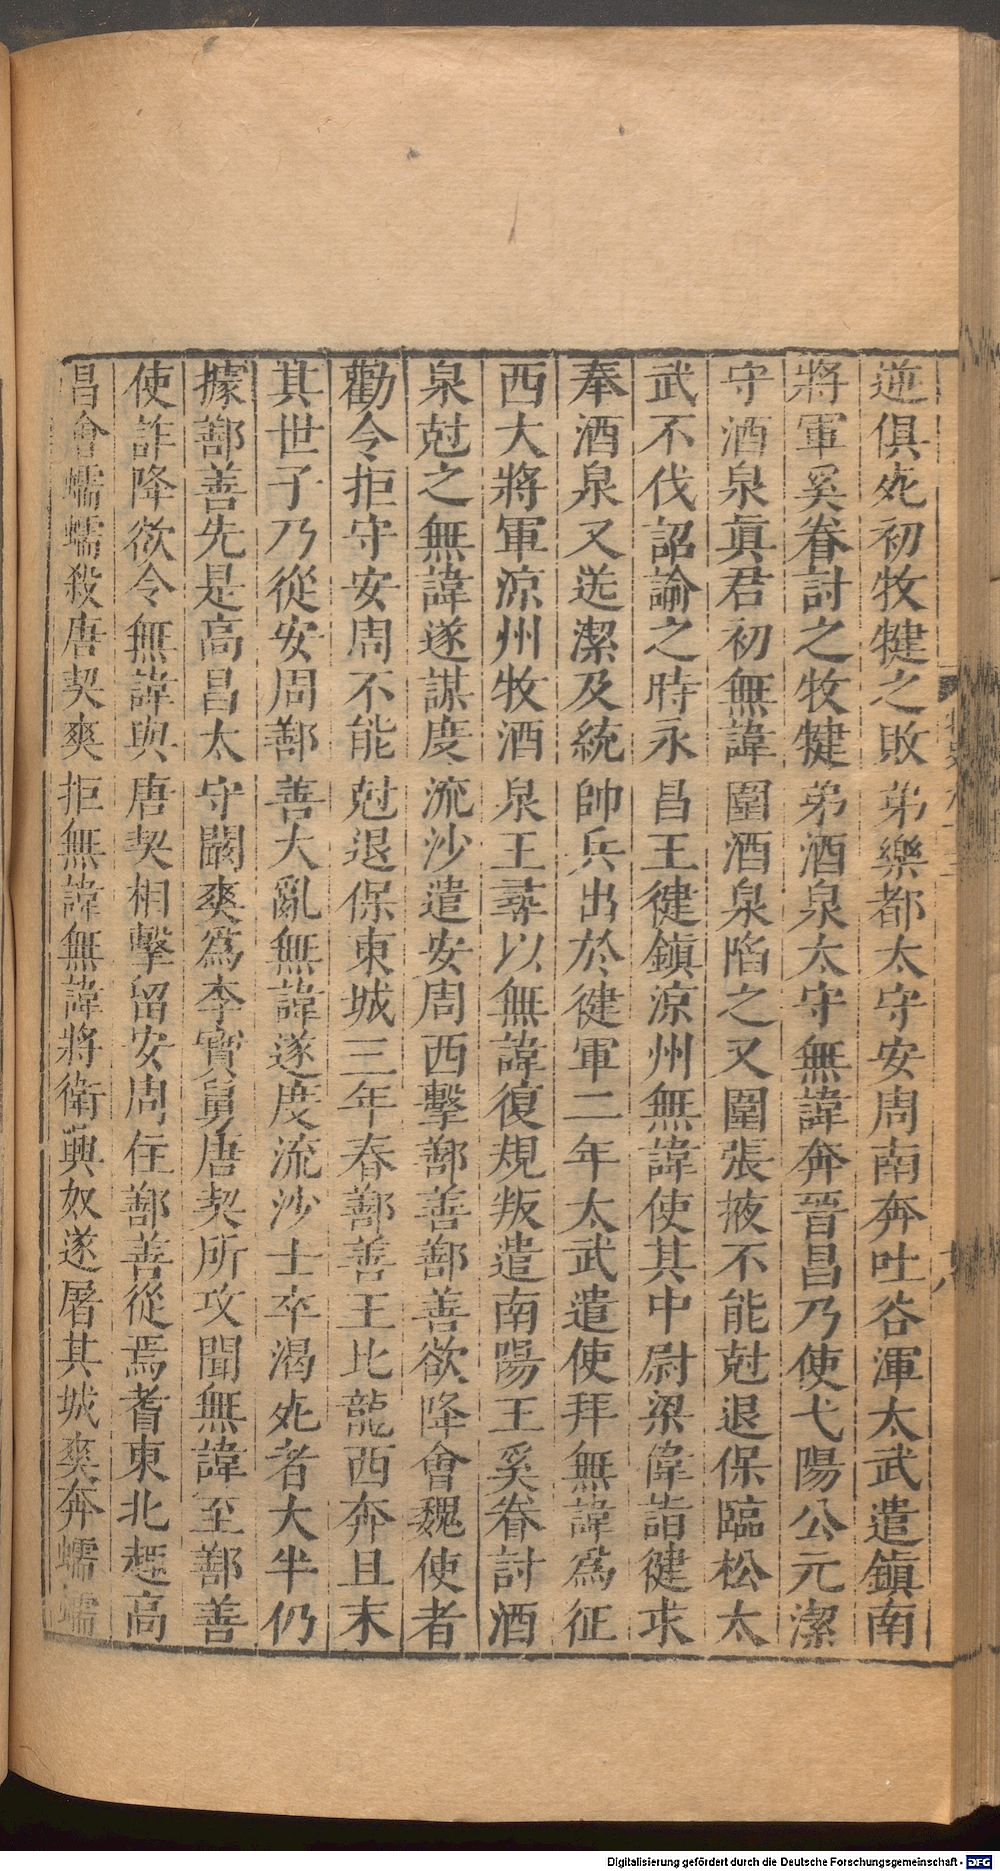 逆俱死初牧犍之敗弟樂都太守安周南奔吐谷渾太武遣鎮南
將軍奚眷討之牧犍弟酒泉太守無諱奔晉昌乃使弋陽公元潔
守酒泉眞君初無諱圍酒泉陷之又圍張掖不能尅退保臨松太
武不伐詔諭之時永昌王健鎮涼州無諱使其中尉梁偉詣健求
奉酒泉又送潔及統帥兵士於健軍二年太武遣使拜無諱爲征
西大將軍涼州牧酒泉王尋以無諱復規叛遣南陽王奚眷討酒
泉尅之無諱遂謀度流沙遣安周西擊鄯善鄯善欲降會魏使者
勸令拒守安周不能尅退保東城三年春鄯善王比龍西奔且末
其世子乃從安周鄯善大亂無諱遂度流沙士卒渴死者大半仍
據鄯善先是高昌太守闞爽爲李寶舅唐契所攻聞無諱至鄯善
使詐降欲令無諱與唐契相擊留安周住鄯善從焉耆東北趣高
昌會蠕蠕殺唐契爽拒無諱無諱將衛興奴遂屠其城爽奔蠕蠕
十八
Digitalisierung gefördert durch die Deutsche Forschungsgemeinschaft - DFG